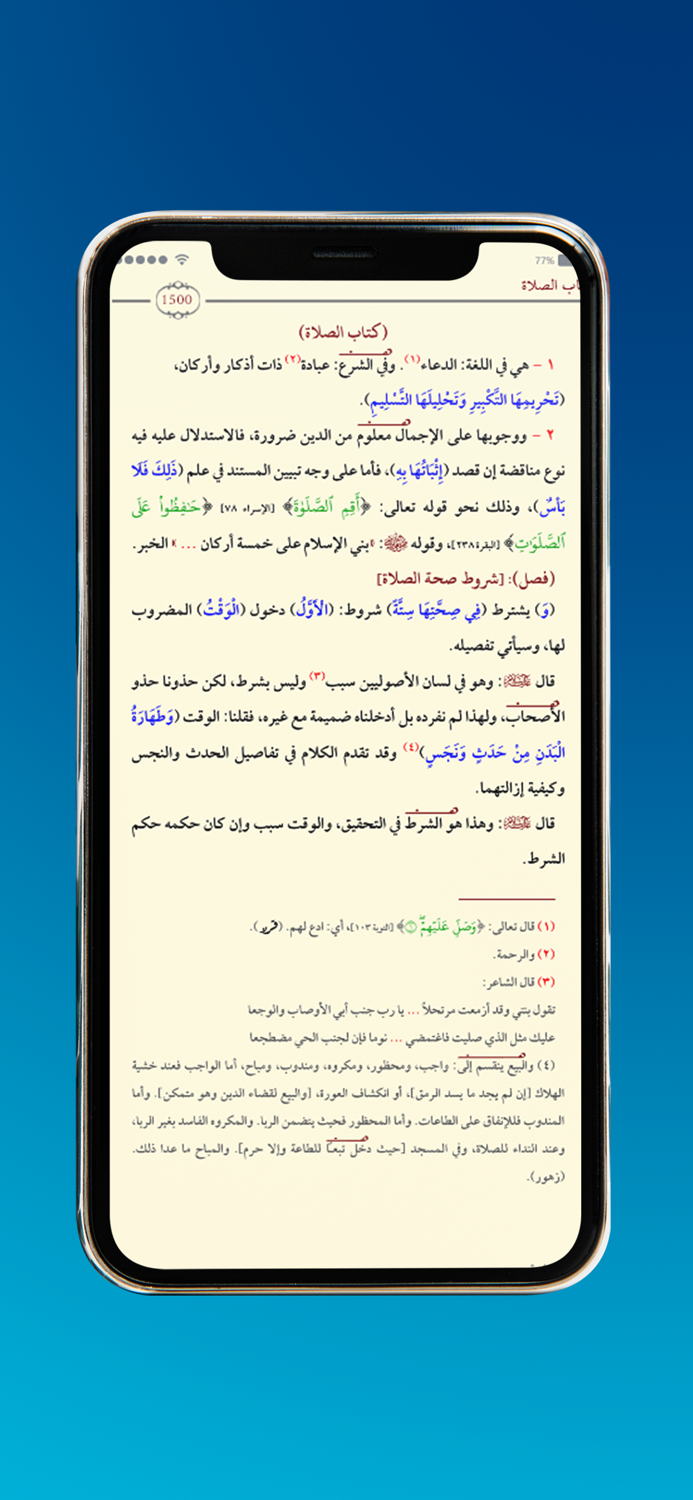 77%
اب الصلاة
1500
(كتاب الصلاة)
١ – هي في اللغة: الدعاء(١). وفي الشرع: عبادة(٢) ذات أذكار وأركان،
(تَحْرِيمِهَا التَّكْبِيرِ وَتَحْلِيلَهَا التَّسْلِيمِ).
٢ – ووجوبها على الإجمال معلوم من الدين ضرورة، فالاستدلال عليه فيه
نوع مناقضة إن قصد (إِثْبَاتُهَا بِهِ)، فأما على وجه تبيين المستند في علم (ذَلِكَ فَلَا
بَأسٌ)، وذلك نحو قوله تعالى: ﴿أَقِمِ ٱلصَّلَوٰةَ﴾ [الإسراء ٧٨] ﴿حَٰفِظُوا۟ عَلَى
ٱلصَّلَوَٰتِ﴾ [البقرة ٢٣٨]، وقوله ﷺ: «بني الإسلام على خمسة أركان ... » الخبر.
(فصل): [شروط صحة الصلاة]
(وَ) يشترط (فِي صِحَّتِهَا سِتَّةٌ) شروط: (الْأَوَّلُ) دخول (الْوَقْتُ) المضروب
لها، وسيأتي تفصيله.
قال : وهو في لسان الأصوليين سبب(٣) وليس بشرط، لكن حذونا حذو
الأصحاب، ولهذا لم نفرده بل أدخلناه ضميمة مع غيره، فقلنا: الوقت (وَطَهَارَةُ
الْبَدَنِ مِنْ حَدَثٍ وَنَجَسٍ)(٤) وقد تقدم الكلام في تفاصيل الحدث والنجس
وكيفية إزالتهما.
قال : وهذا هو الشرط في التحقيق، والوقت سبب وإن كان حكمه حكم
الشرط.
(١) قال تعالى: ﴿وَصَلِّ عَلَيْهِمْۖ﴾ [التوبة ١٠٣]، أي: ادع لهم.
(٢) والرحمة.
(٣) قال الشاعر:
تقول بنتي وقد أزمعت مرتحلاً ... يا رب جنب أبي الأوصاب والوجعا
عليك مثل الذي صليت فاغتمضي ... نوما فإن لجنب الحي مضطجعا
(٤) والبيع ينقسم إلى: واجب، ومحظور، ومكروه، ومندوب، ومباح، أما الواجب فعند خشية
الهلاك [إن لم يجد ما يسد الرمق]، أو انكشاف العورة، [والبيع لقضاء الدين وهو متمكن]. وأما
المندوب فللإنفاق على الطاعات. وأما المحظور فحيث يتضمن الربا. والمكروه الفاسد بغير الربا،
وعند النداء للصلاة، وفي المسجد [حيث دخل تبعاً للطاعة وإلا حرم]. والمباح ما عدا ذلك.
(زهور).